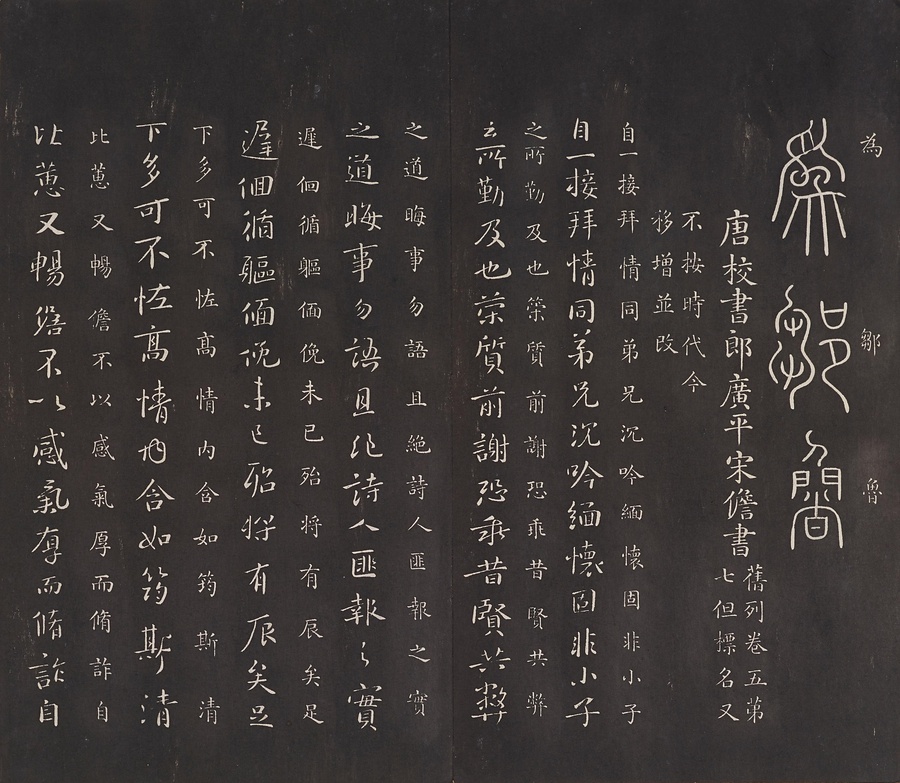 為鄒魯
為鄒魯
唐校書郎廣平宋儋書
舊列卷五第
七但標名又
不按時代今
移增並改
自一接拜情同弟兄沉吟緬懷固非小子
自一接拜情同弟兄沉吟緬懷固非小子
之所勤及也榮質前謝恐乖昔賢共弊
之所勤及也榮質前謝恐乖昔賢共弊
之道晦事勿語且絶詩人匪報之實
之道晦事勿語且絶詩人匪報之實
遲佪循軀偭俛未已殆将有辰矣足
遲佪循軀偭俛未已殆将有辰矣足
下多可不恠髙情内含如筠斯清
下多可不恠髙情内含如筠斯清
比蕙又暢儋不以感氣厚而脩詐自
比蕙又暢儋不以感氣厚而脩詐自